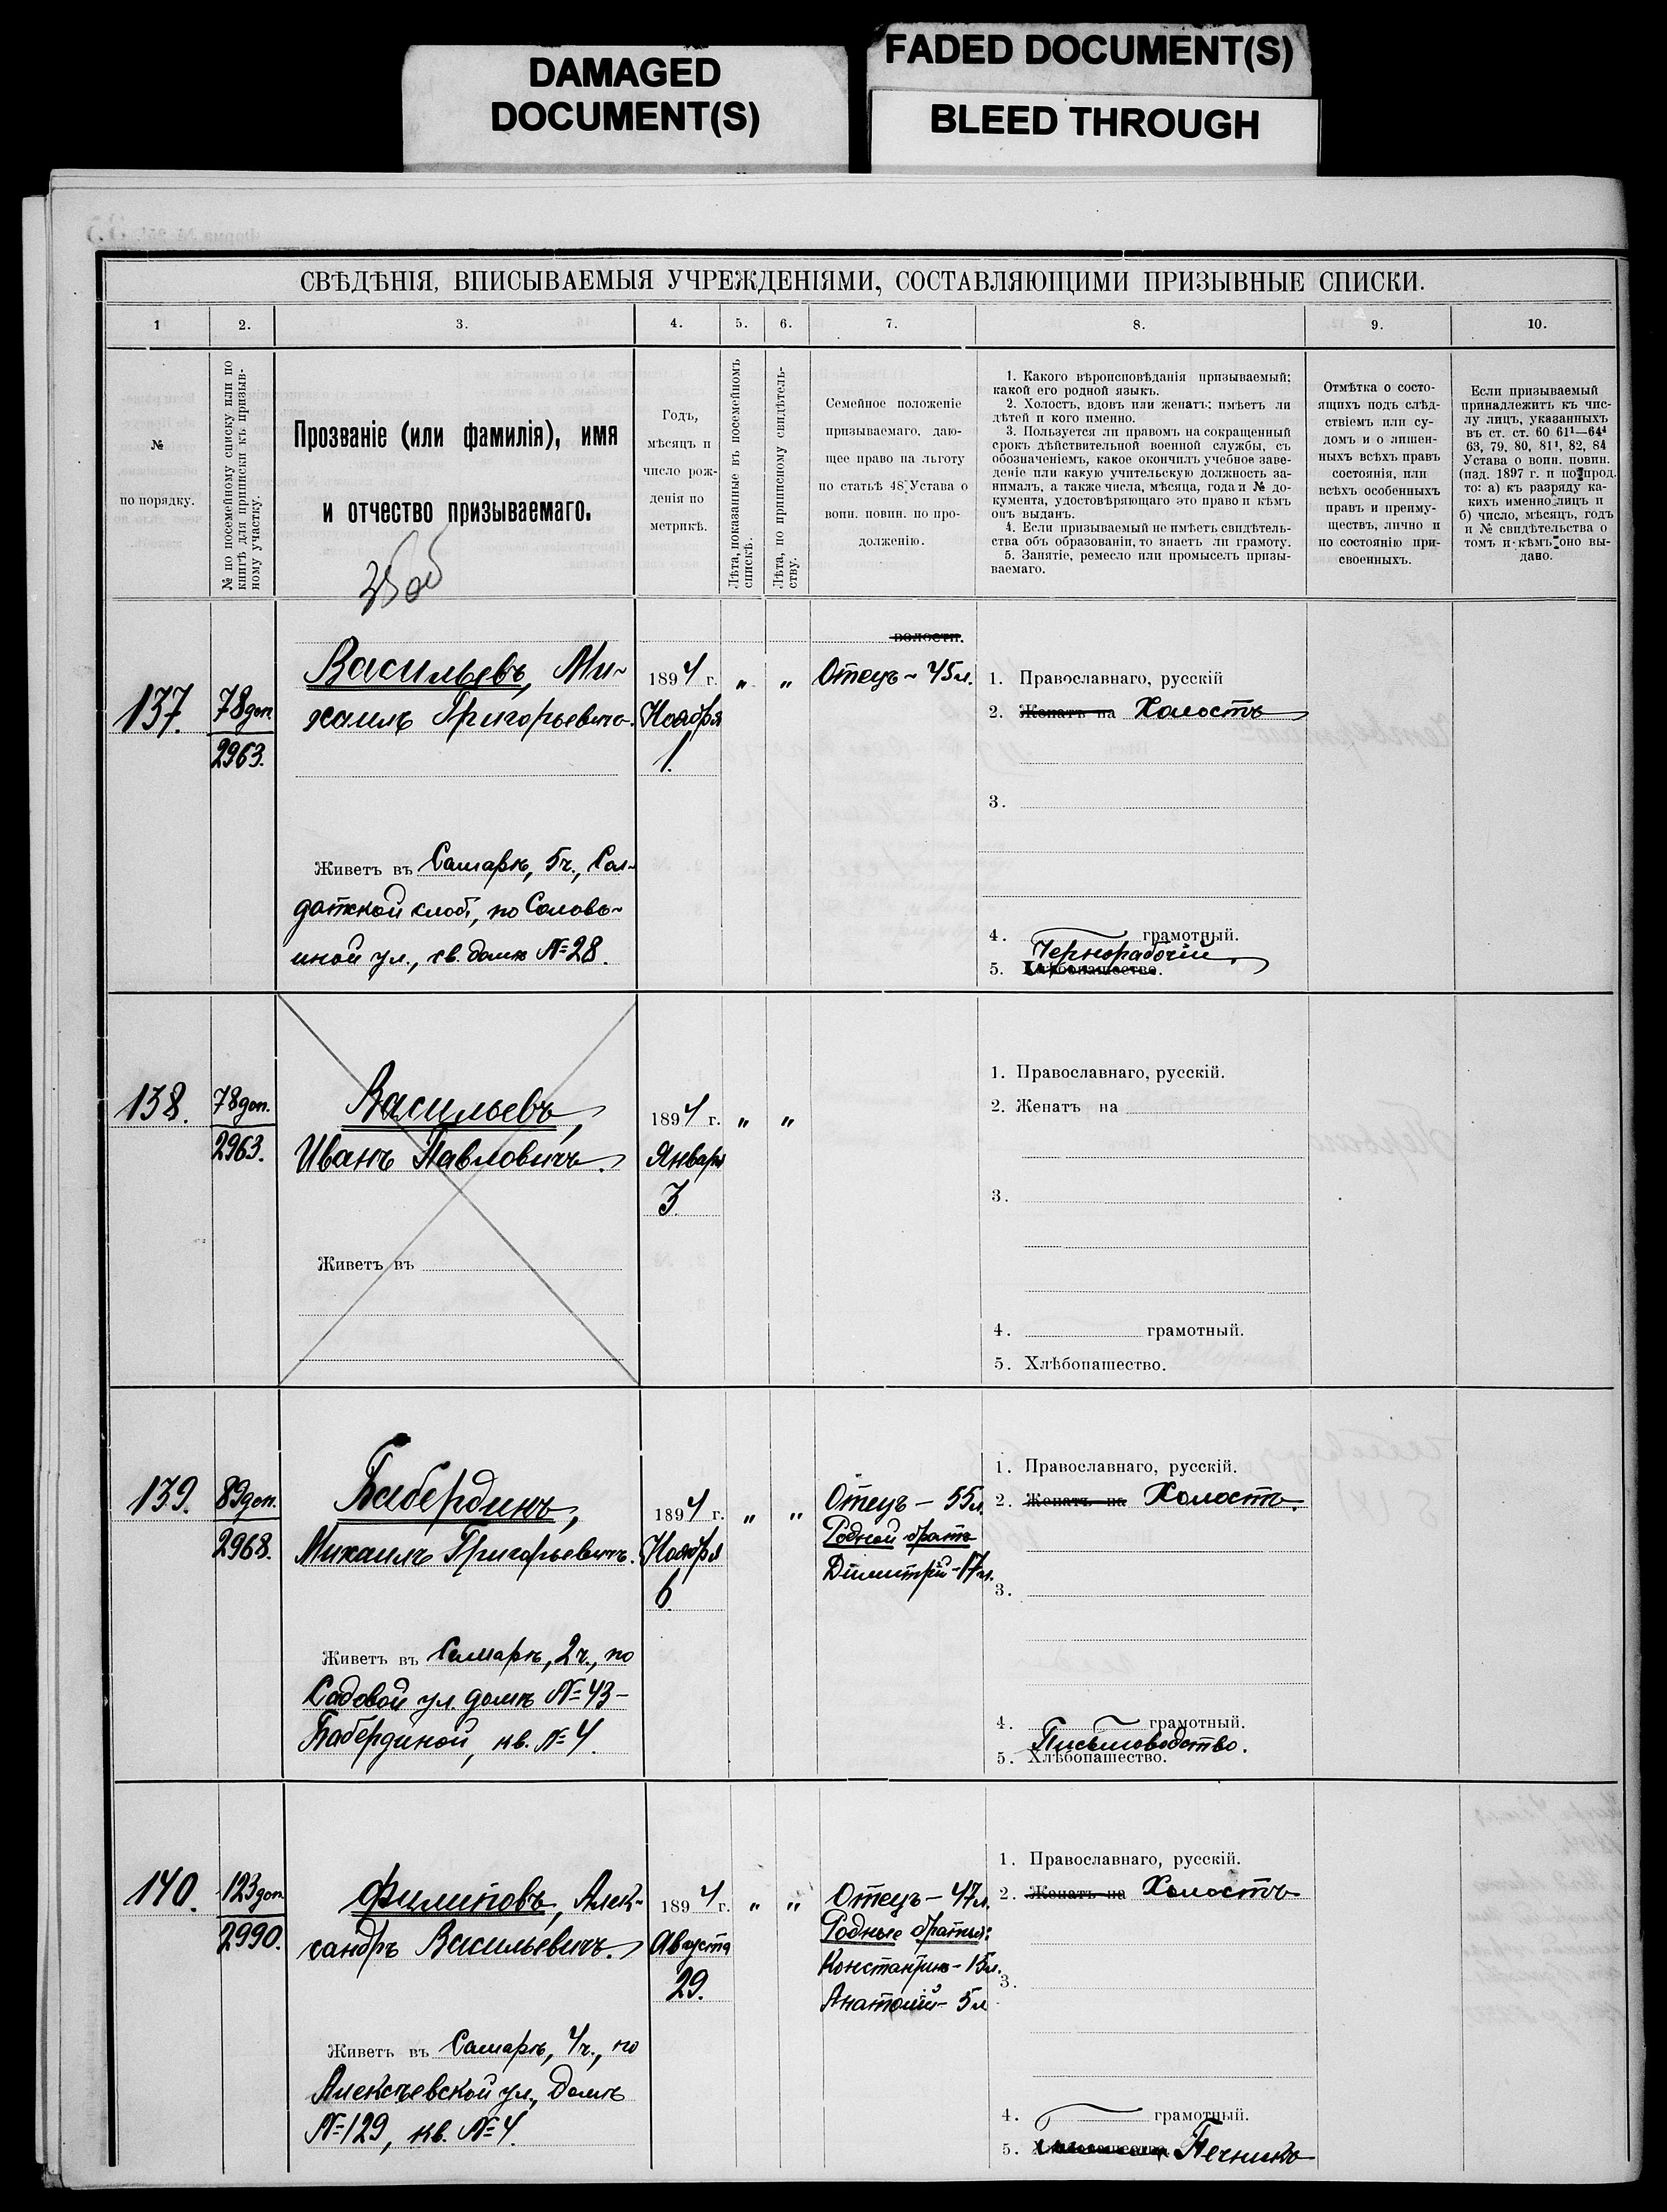 DAMAGED
DOCUMENT(S)
FADED DOCUMENT(S)
BLEED THROUGH
СВѢДѢНІЯ, ВПИСЫВАЕМЫЯ УЧРЕЖДЕНІЯМИ, СОСТАВЛЯЮЩИМИ ПРИЗЫВНЫЕ СПИСКИ.
1 2. 3. 4. 5. 6. 7. 8. 9. 10.
№
по порядку.
№ по посемейному списку или по
книгѣ для приписки къ призыв-
ному участку.
Прозваніе (или фамилія), имя
и отчество призываемаго.
Годъ,
мѣсяцъ и
число рож-
денія по
метрикѣ.
Лѣта, показанные въ посемейномъ
спискѣ.
Лѣта, по приписному свидѣтель-
ству.
Семейное положеніе
призываемаго, даю-
щее право на льготу
по статьѣ 48 Устава о
воин. повин. по про-
долженію.
1. Какого вѣроисповѣданія призываемый;
какой его родной языкъ.
2. Холостъ, вдовъ или женатъ; имѣетъ ли
дѣтей и кого именно.
3. Пользуется ли правомъ на сокращенный
срокъ дѣйствительной военной службы, съ
обозначеніемъ, какое окончилъ учебное заве-
деніе или какую учительскую должность за-
нималъ, а также числа, мѣсяца, года и № до-
кумента, удостовѣряющаго это право и кѣмъ
онъ выданъ.
4. Если призываемый не имѣетъ свидѣтель-
ства объ образованіи, то знаетъ ли грамоту.
5. Занятіе, ремесло или промыселъ призы-
ваемаго.
Отмѣтка о состо-
ящихъ подъ слѣд-
ствіемъ или су-
домъ и о лишен-
ныхъ всѣхъ правъ
состоянія, или
всѣхъ особенныхъ
правъ и преиму-
ществъ, лично и
по состоянію при-
своенныхъ.
Если призываемый
принадлежитъ къ чис-
лу лицъ, указанныхъ
въ ст. ст. 60 61¹—64⁴
63, 79, 80, 81¹, 82, 84
Устава о воин. повин.
(изд. 1897 г. и по прод.
то: а) къ разряду ка-
кихъ именно лицъ и
б) число, мѣсяцъ, годъ
и № свидѣтельства о
томъ и кѣмъ оно вы-
дано.
137.
78 доп.
2963.
Васильевъ, Ми-
хаилъ Григорьевичъ.
Живетъ въ Самарѣ, 5ч., Сол-
датской слоб., по Соловь-
иной ул., св. домѣ №28.
1894 г.
Ноября
1.
" "
волости.
Отецъ - 45л.
1. Православнаго, русскій
2. Женатъ на Холостъ
3.
4. грамотный.
Чернорабочій.
5. Хлѣбопашество.
138.
78 доп.
2963.
Васильевъ,
Иванъ Павловичъ.
Живетъ въ
1894 г.
Января
3.
" "
1. Православнаго, русскій.
2. Женатъ на
3.
4. грамотный.
5. Хлѣбопашество.
139.
89 доп.
2968.
Бабердинъ,
Михаилъ Григорьевичъ.
Живетъ въ Самарѣ, 2ч., по
Садовой ул. домъ №43-
Бабердиной, кв. №4.
1894 г.
Ноября
6.
" "
Отецъ - 55л.
Родной братъ
Димитрій - 17л.
1. Православнаго, русскій.
2. Женатъ на Холостъ.
3.
4. грамотный.
Письмоводство.
5. Хлѣбопашество.
140.
123 доп.
2990.
Филиповъ, Алек-
сандръ Васильевичъ.
Живетъ въ Самарѣ, 4ч., по
Алексѣевской ул., домъ
№129, кв. №4.
1894 г.
Августа
29.
" "
Отецъ - 47л.
Родные братья:
Константинъ - 15л.
Анатолій - 5л.
1. Православнаго, русскій.
2. Женатъ на Холостъ
3.
4. грамотный.
5. Хлѣбопашество Печникъ